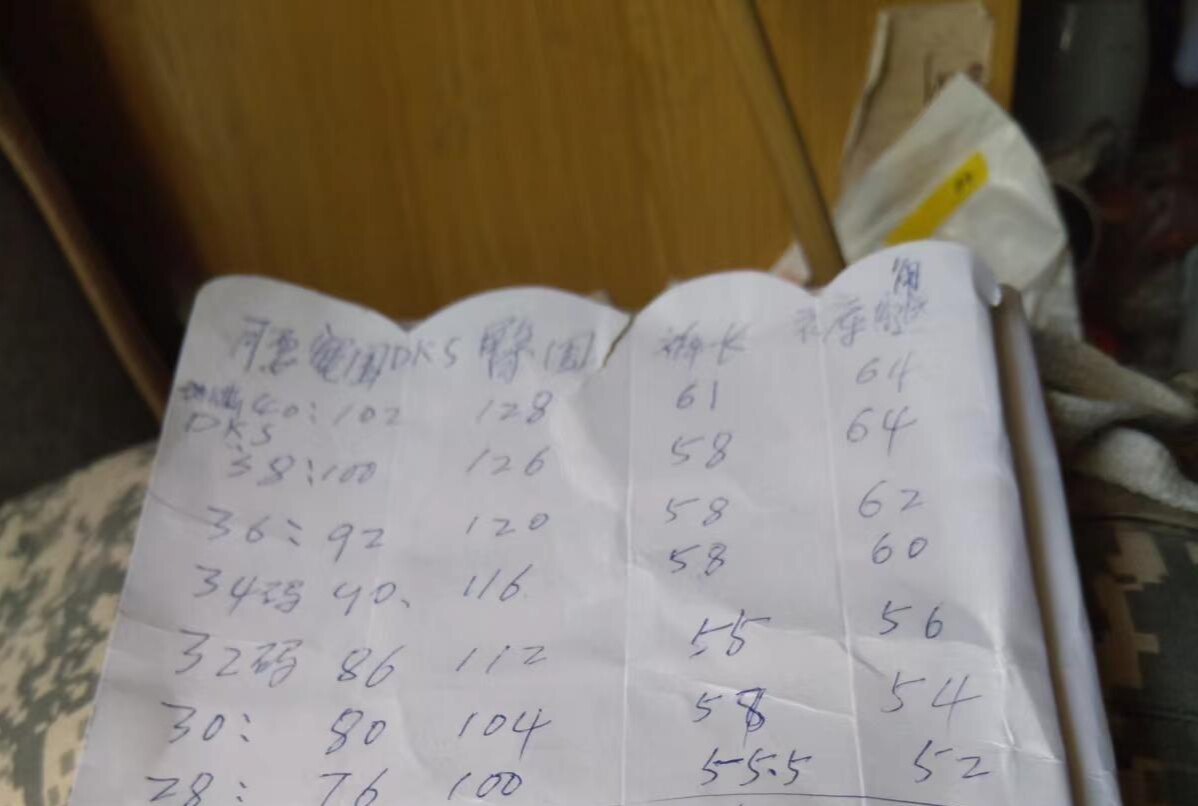 围 DKS 围 裤长
40:102 128 61 64
DKS
38:100 126 58 64
36: 92 120 58 62
34码 90、 116 58 60
32码 86 112 55 56
30: 80 104 58 54
28: 76 100 55.5 52